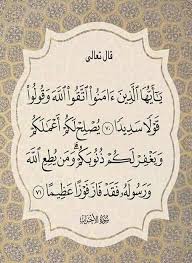 قال تعالى
يَٰٓأَيُّهَا ٱلَّذِينَ ءَامَنُوا۟ ٱتَّقُوا۟ ٱللَّهَ وَقُولُوا۟
قَوْلًا سَدِيدًا ۝٧٠ يُصْلِحْ لَكُمْ أَعْمَٰلَكُمْ
وَيَغْفِرْ لَكُمْ ذُنُوبَكُمْ ۗ وَمَن يُطِعِ ٱللَّهَ
وَرَسُولَهُۥ فَقَدْ فَازَ فَوْزًا عَظِيمًا ۝٧١
سورة الأحزاب